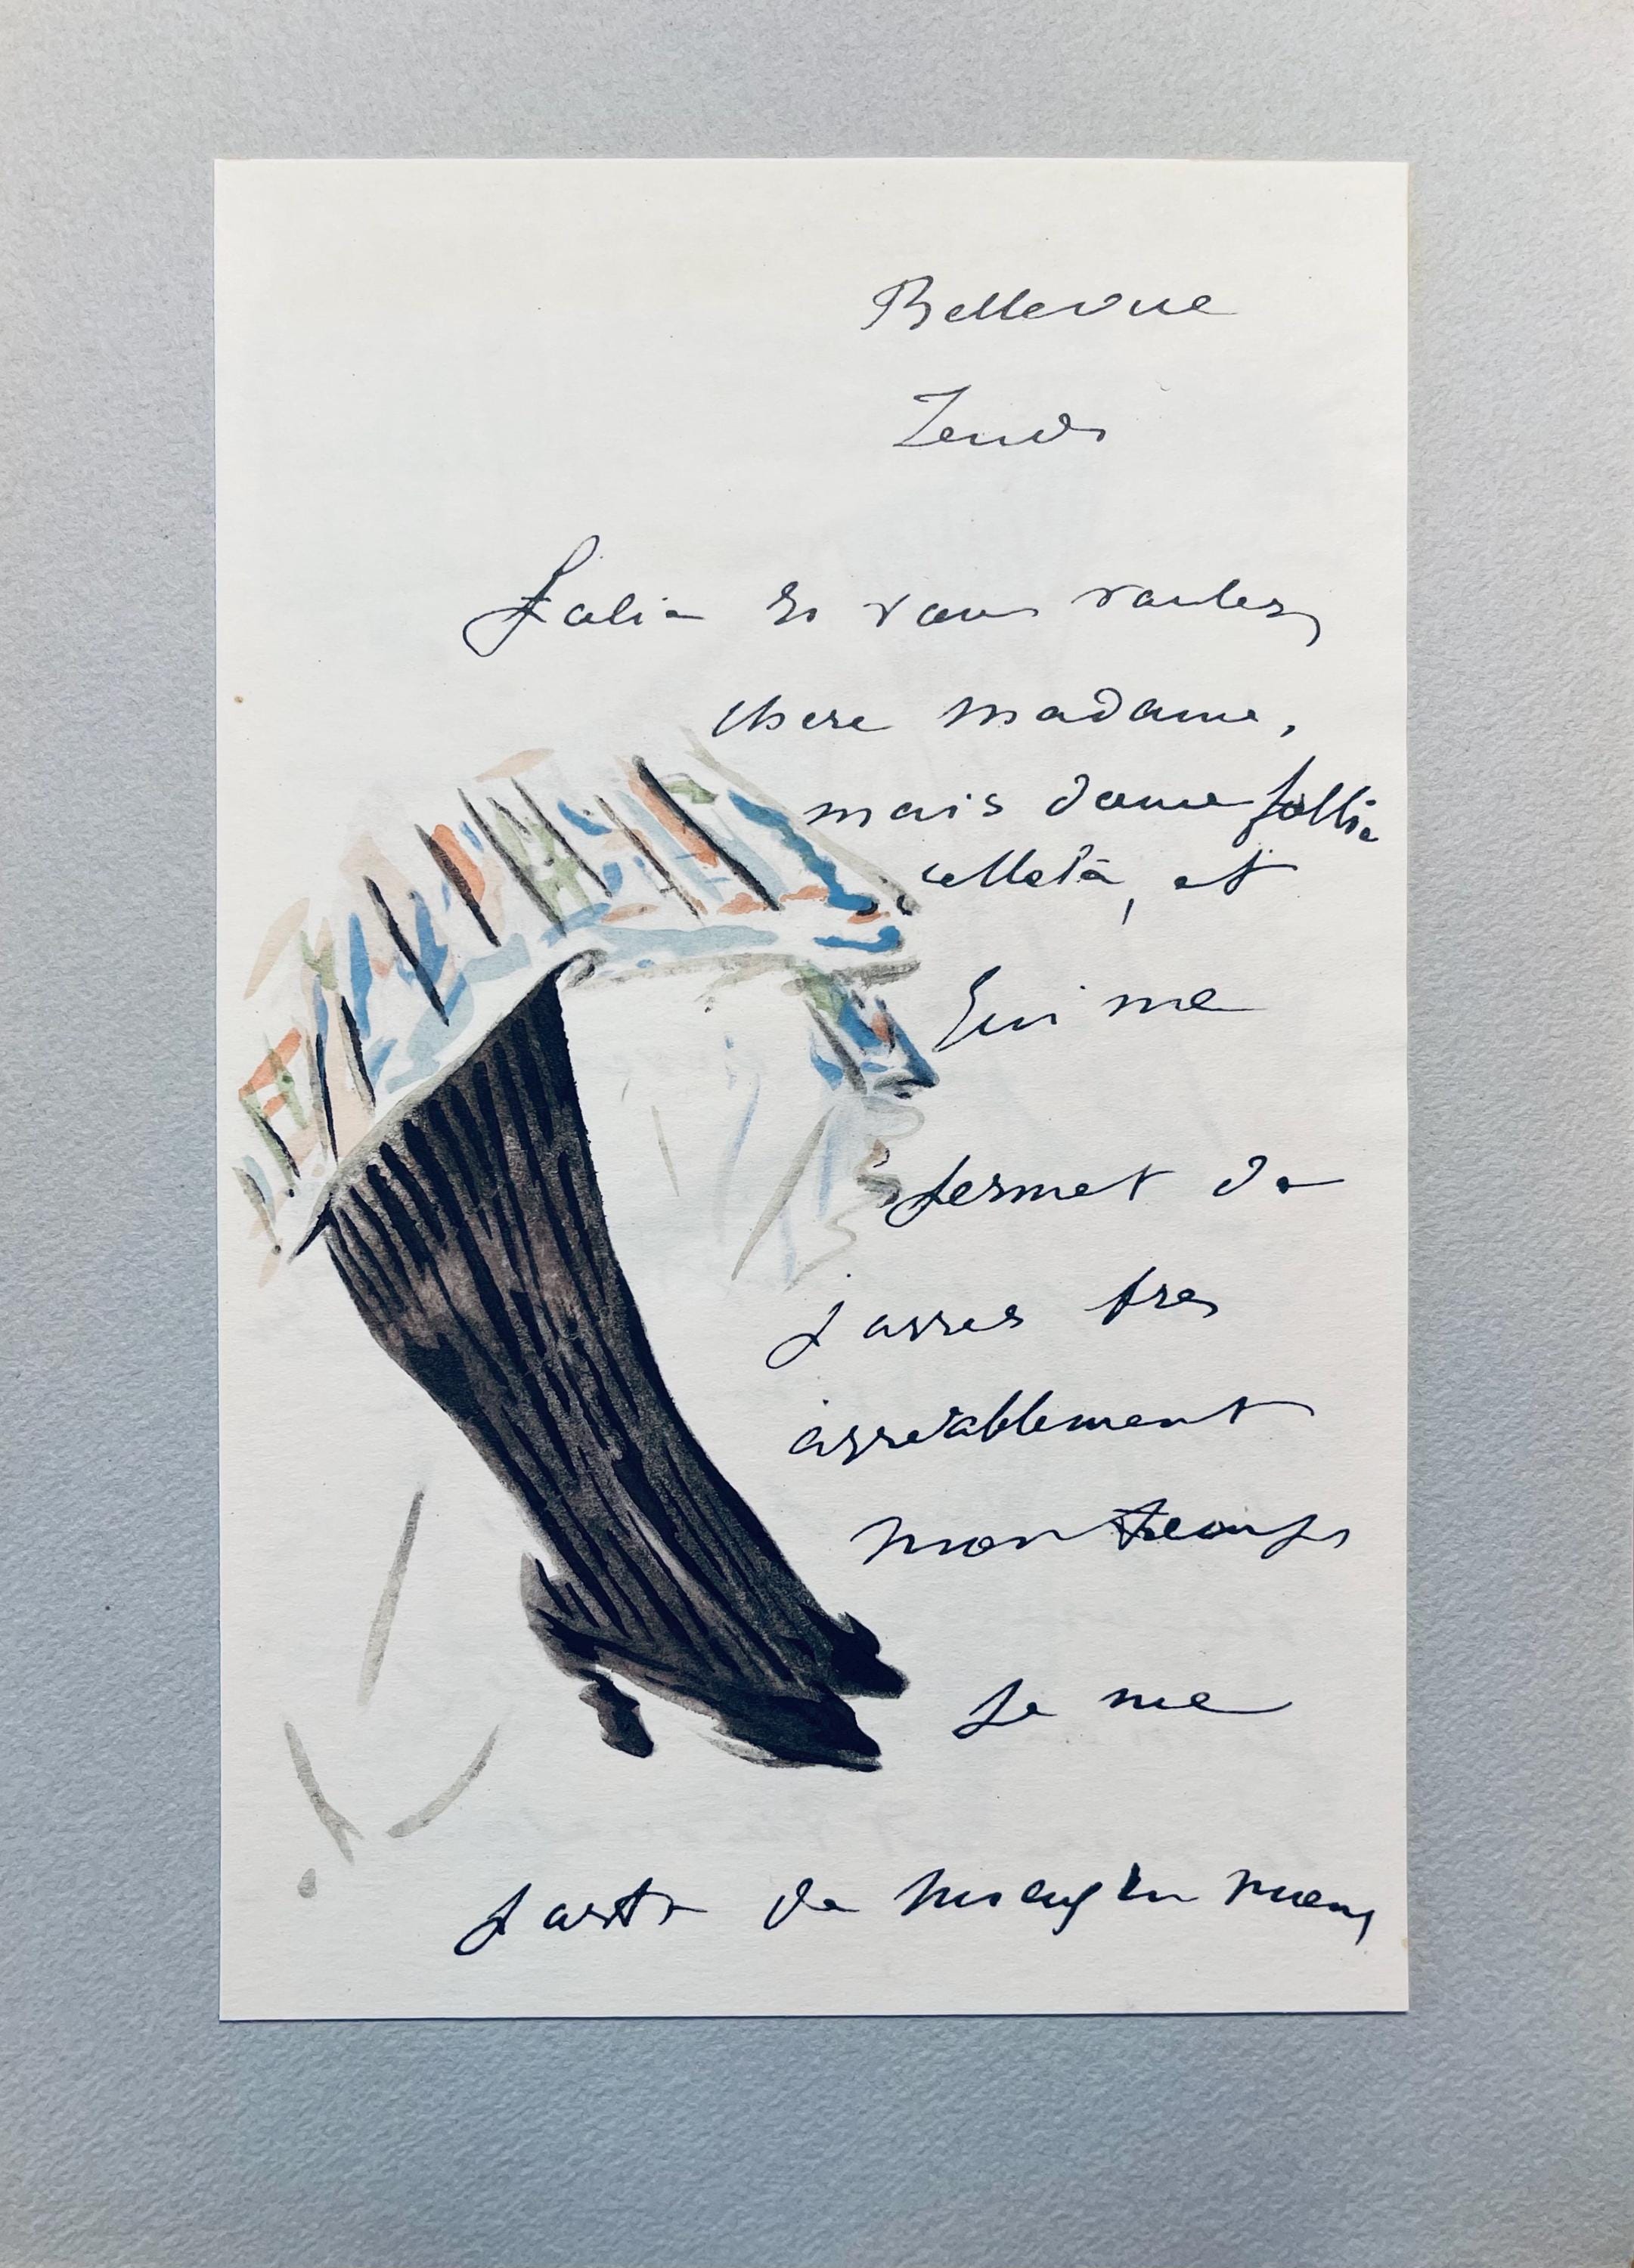 Bellevue
Jeudi
Folie si vous voulez,
chere madame,
mais douce folie
celle la, et
qui me
permet de
passer tres
agréablement
mon temps
Je me
porte de mieux en mieux